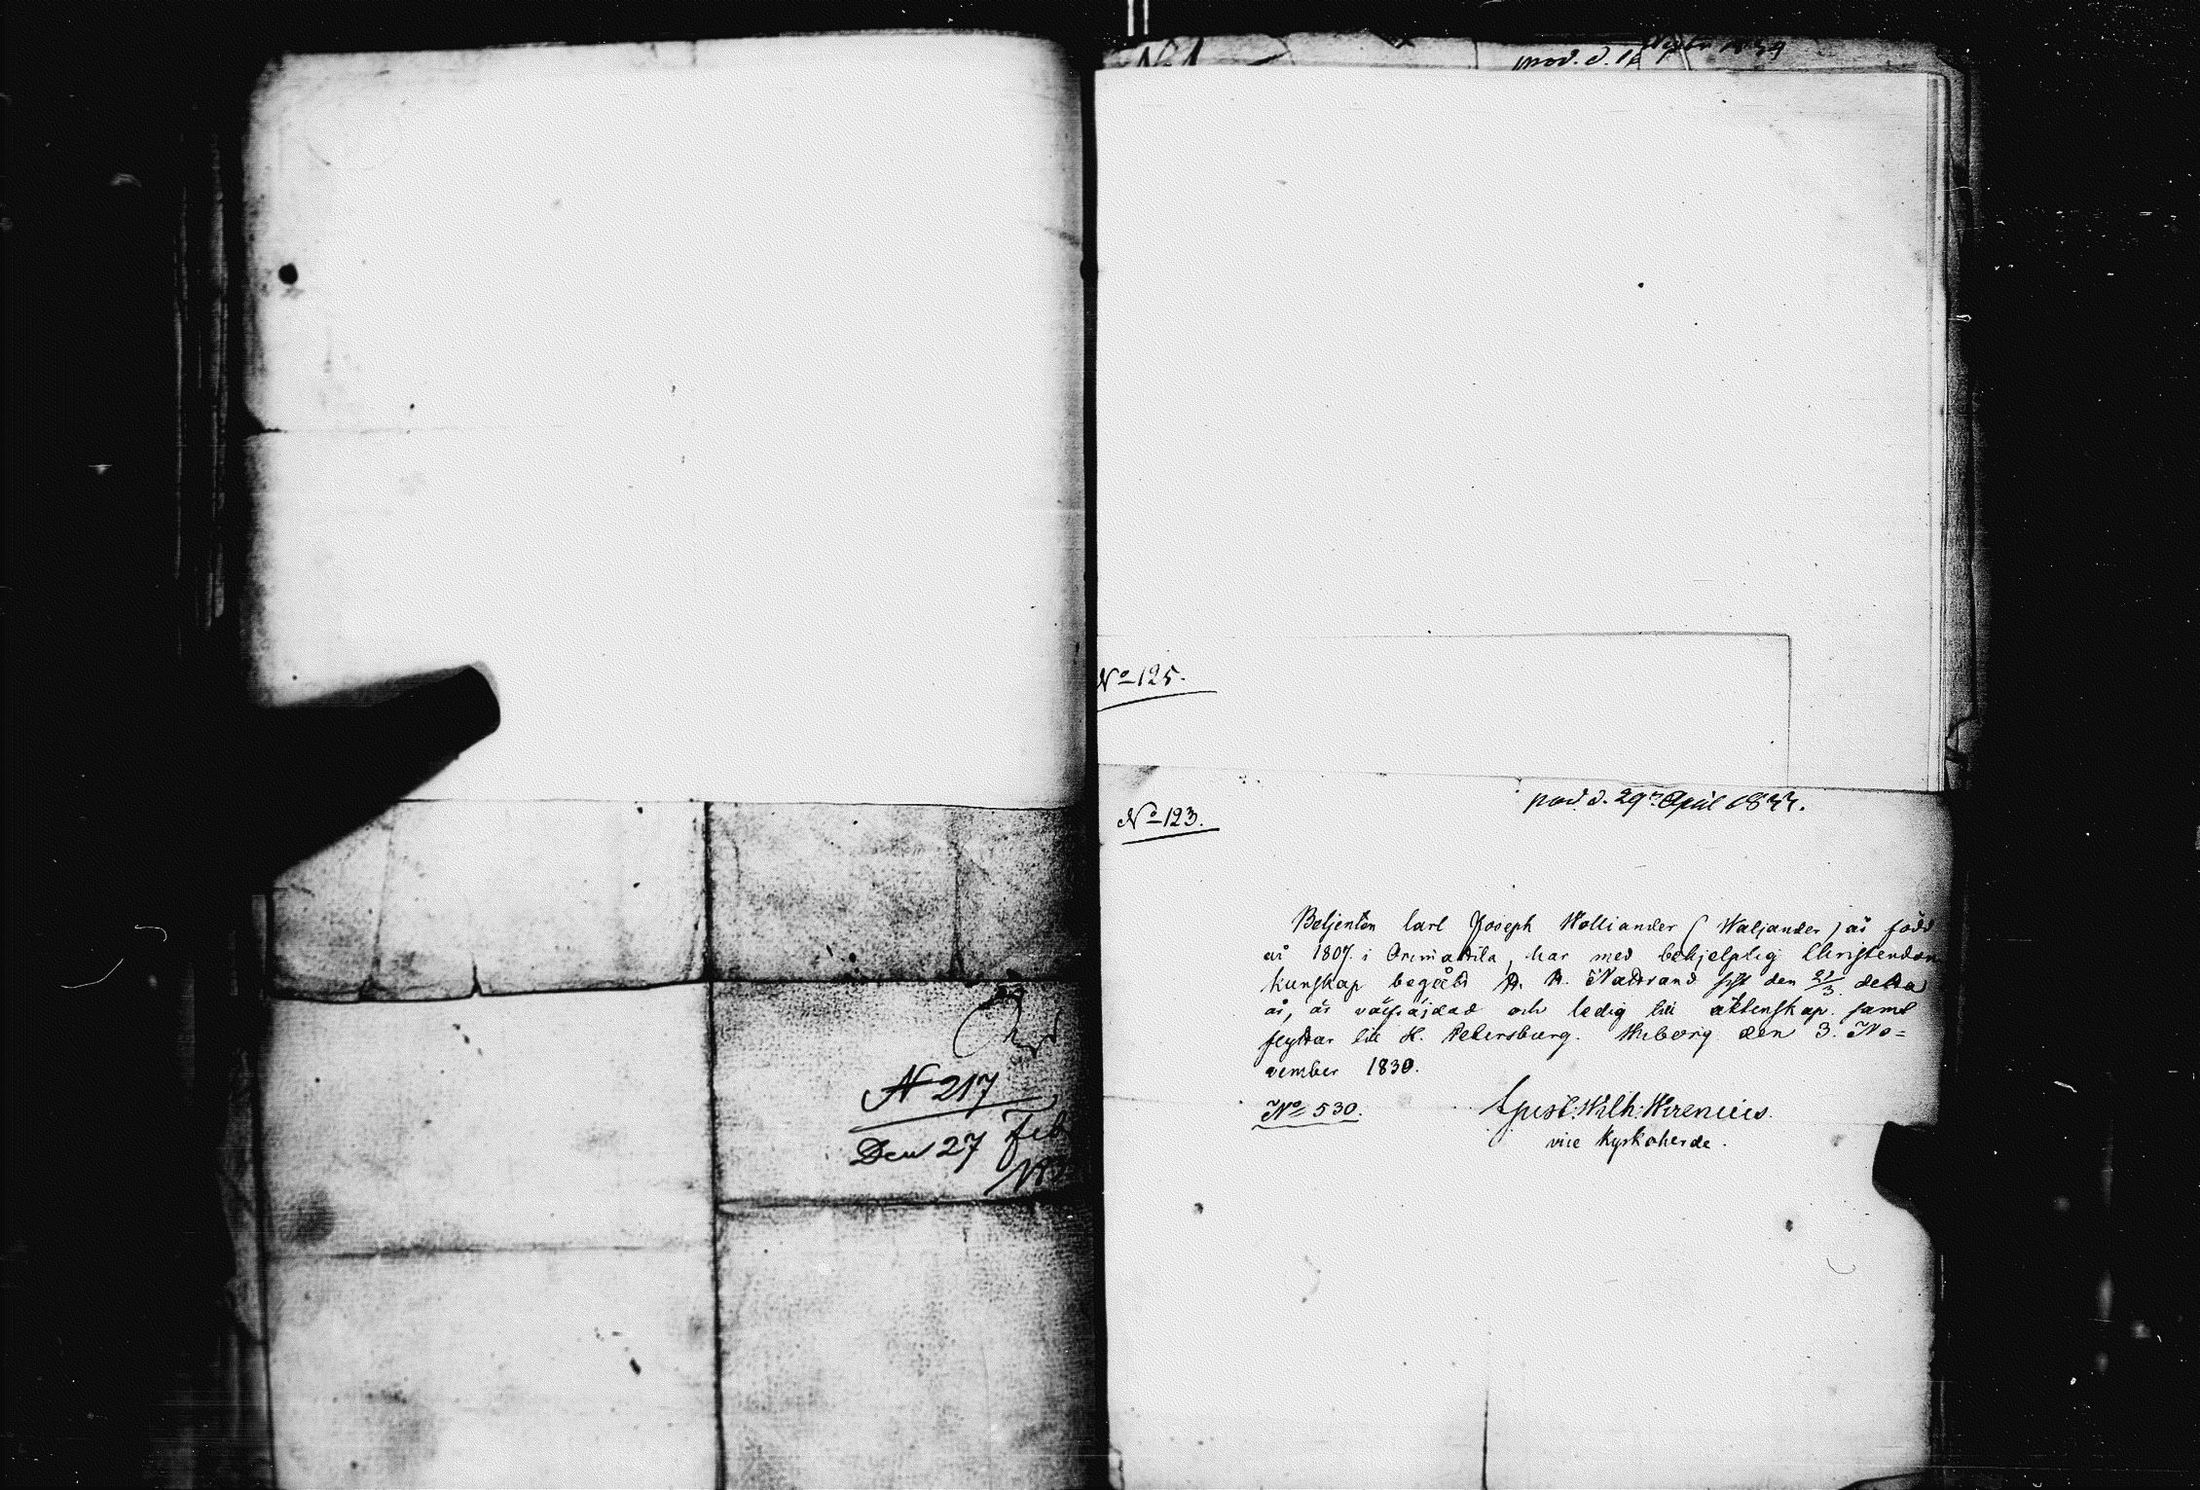 N 217
Den 27 Feb
No 125.
No 123.
prod. d. 29 April 1833.
Betjenten Carl Joseph Walliander (Waljander) är född
år 1807. i Orimattila, har med behjelplig Christendom
kunskap begått H. H. Nattvard sist den 21/3. detta
år, är välfräjdad och ledig till äktenskap. samt
flyttar till St. Petersburg. Wiborg den 3. No=
vember 1830.
No 530.
Gust: Wilh: Wirenius.
vice Kyrkoherde.